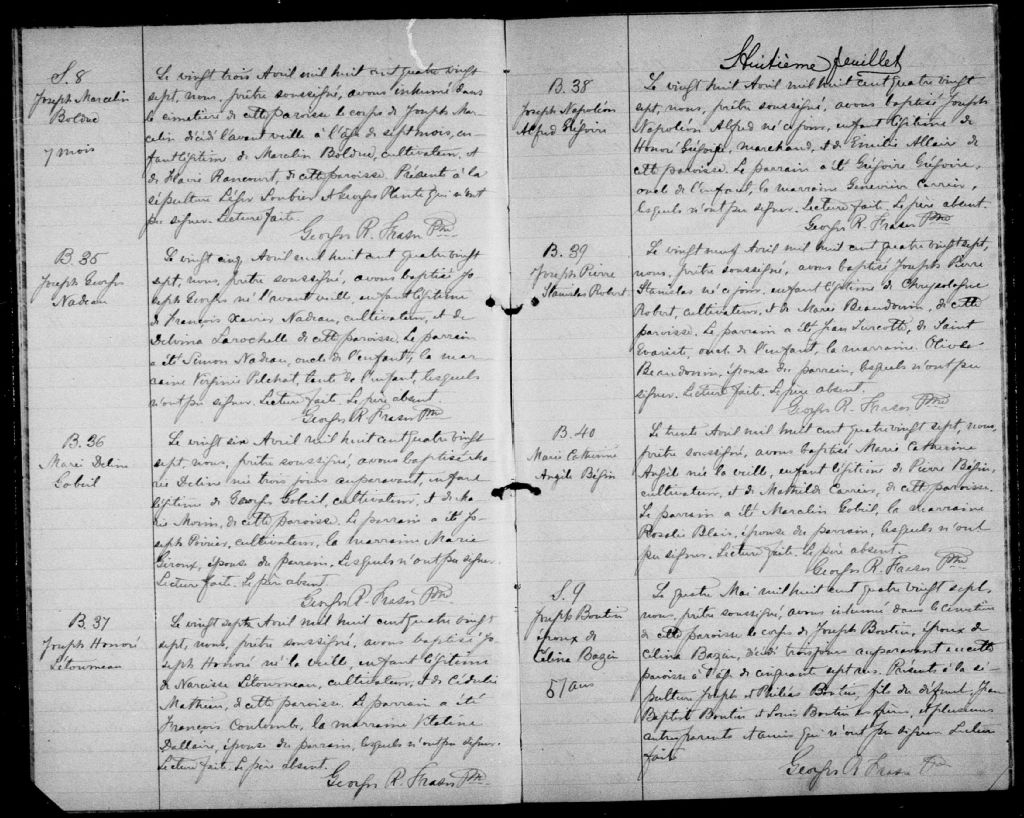 S. 8
Joseph Marcelin
Bolduc
7 mois
Le vingt trois Avril mil huit cent quatre vingt
sept, nous, prêtre soussigné, avons inhumé dans
le cimetière de cette paroisse le corps de Joseph Mar-
celin décédé l'avant veille à l'âge de sept mois, en-
fant légitime de Marcelin Bolduc, cultivateur, et
de Flavie Rancourt, de cette paroisse. Présents à la
sépulture Léger Loubier et Georges Plante qui n'ont
pu signer. Lecture faite.
Georges R. Fraser Ptre
B. 35
Joseph Georges
Nadeau
Le vingt cinq Avril mil huit cent quatre vingt
sept, nous, prêtre soussigné, avons baptisé Jo-
seph Georges né l'avant veille, enfant légitime
de François Xavier Nadeau, cultivateur, et de
Delvina Larochelle de cette paroisse. Le parrain
a été Simon Nadeau, oncle de l'enfant, la mar-
raine Virginie Pelchat, tante de l'enfant, lesquels
n'ont pu signer. Lecture faite. Le père absent.
Georges R. Fraser Ptre
B. 36
Marie Delina
Gobeil
Le vingt six Avril mil huit cent quatre vingt
sept, nous, prêtre soussigné, avons baptisé Ma-
rie Delina née trois jours auparavant, enfant
légitime de Georges Gobeil, cultivateur, et de Ma-
rie Morin, de cette paroisse. Le parrain a été Jo-
seph Poirier, cultivateur, la marraine Marie
Giroux, épouse du parrain. Lesquels n'ont pu signer.
Lecture faite. Le père absent.
Georges R. Fraser Ptre
B. 37
Joseph Honoré
Létourneau
Le vingt sept Avril mil huit cent quatre vingt
sept, nous, prêtre soussigné, avons baptisé Jo-
seph Honoré né la veille, enfant légitime
de Narcisse Létourneau, cultivateur, et de Cédulie
Mathieu, de cette paroisse. Le parrain a été
François Coulombe, la marraine Vitaline
Dallaire, épouse du parrain, lesquels n'ont pu signer.
Lecture faite. Le père absent.
Georges R. Fraser Ptre
Huitième feuillet
B. 38
Joseph Napoléon
Alfred Grégoire
Le vingt huit Avril mil huit cent quatre vingt
sept, nous, prêtre soussigné, avons baptisé Joseph
Napoléon Alfred né ce jour, enfant légitime de
Honoré Grégoire, marchand, et de Emélie Allaire de
cette paroisse. Le parrain a été Grégoire Grégoire,
oncle de l'enfant, la marraine Geneviève Carrier,
lesquels n'ont pu signer. Lecture faite. Le père absent.
Georges R. Fraser Ptre
B. 39
Joseph Pierre
Stanislas Robert
Le vingt neuf Avril mil huit cent quatre vingt sept,
nous, prêtre soussigné, avons baptisé Joseph Pierre
Stanislas né ce jour, enfant légitime de Chrysologue
Robert, cultivateur, et de Marie Beaudouin, de cette
paroisse. Le parrain a été Jean Turcotte, de Saint
Evariste, oncle de l'enfant, la marraine Olive
Beaudouin, épouse du parrain, lesquels n'ont pu
signer. Lecture faite. Le père absent.
Georges R. Fraser Ptre
B. 40
Marie Catherine
Angèle Bégin
Le trente Avril mil huit cent quatre vingt sept, nous,
prêtre soussigné, avons baptisé Marie Catherine
Angèle née la veille, enfant légitime de Pierre Bégin,
cultivateur, et de Mathilde Carrier, de cette paroisse.
Le parrain a été Marcelin Gobeil, la marraine
Rosalie Blais, épouse du parrain, lesquels n'ont
pu signer. Lecture faite. Le père absent.
Georges R. Fraser Ptre
S. 9
Joseph Boutin
époux de
Célina Bazin
57 ans
Le quatre Mai mil huit cent quatre vingt sept,
nous, prêtre soussigné, avons inhumé dans le cimetière
de cette paroisse le corps de Joseph Boutin, époux de
Célina Bazin, décédé trois jours auparavant en cette
paroisse à l'âge de cinquante sept ans. Présents à la sé-
pulture Joseph et Philias Boutin, fils du défunt, Jean
Baptiste Boutin et Louis Boutin cousins, et plusieurs
autres parents et amis qui n'ont pu signer. Lecture
faite
Georges R. Fraser Ptre